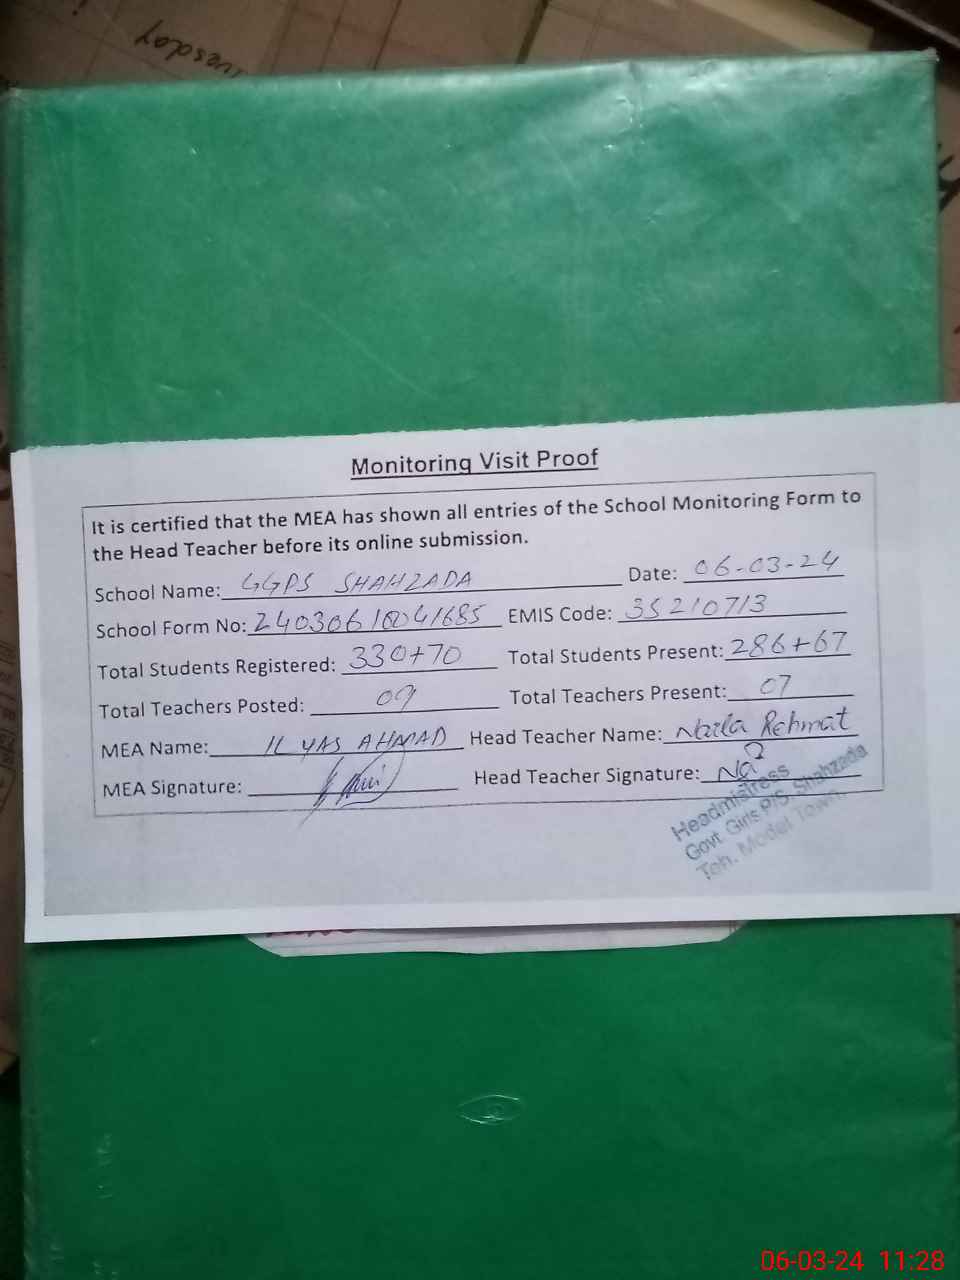 Tuesday
Monitoring Visit Proof
It is certified that the MEA has shown all entries of the School Monitoring Form to
the Head Teacher before its online submission.
School Name: GGPS SHAHZADA Date: 06-03-24
School Form No: EMIS Code: 35210713
Total Students Registered: 330+70 Total Students Present: 286+67
Total Teachers Posted: 09 Total Teachers Present: 07
MEA Name: ILYAS AHMAD Head Teacher Name: Naila Rehmat
MEA Signature: Head Teacher Signature:
Headmistress
Govt. Girls P/S. Shahzada
Teh. Model Town.
06-03-24 11:28